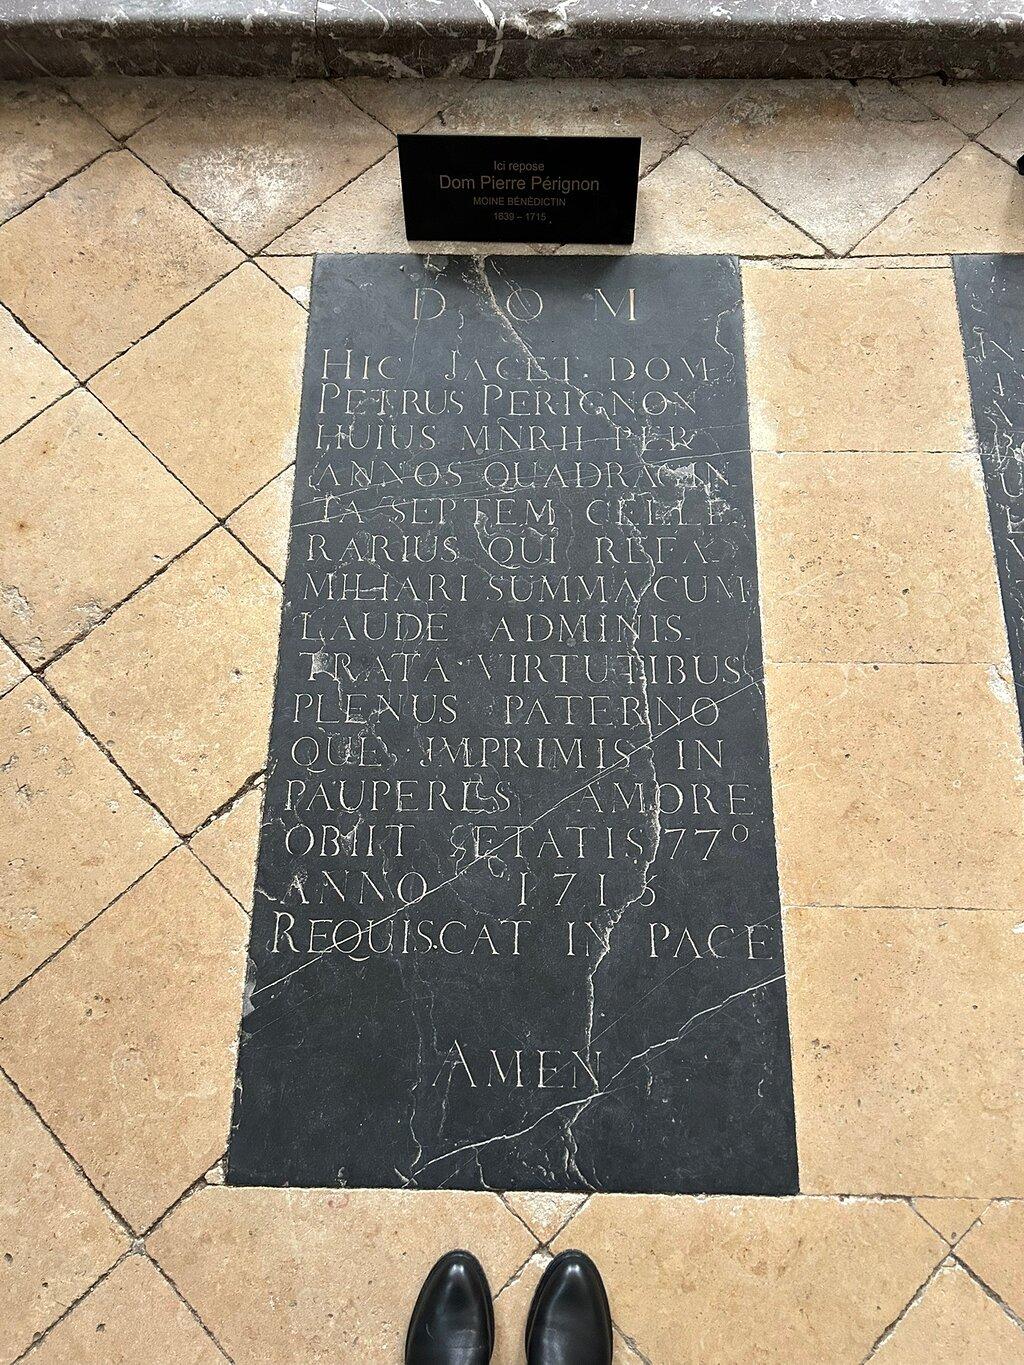 Ici repose
Dom Pierre Pérignon
MOINE BÉNÉDICTIN
1639 – 1715
D O M
HIC JACET DOM
PETRUS PERIGNON
HUIUS MNRII PER
ANNOS QUADRAGIN
TA SEPTEM CELLE
RARIUS QUI REFA
MILIARI SUMMA CUM
LAUDE ADMINIS
TRATA VIRTUTIBUS
PLENUS PATERNO
QUE IMPRIMIS IN
PAUPERES AMORE
OBIIT ÆTATIS 77º
ANNO 1715
REQUISCAT IN PACE
AMEN